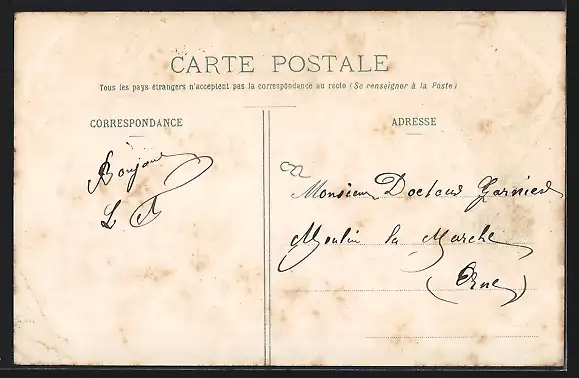 CARTE POSTALE
Tous les pays étrangers n'acceptent pas la correspondance au recto (Se renseigner à la Poste)
CORRESPONDANCE
ADRESSE
Bonjour
Monsieur Docteur Garnier
Moulin la Marche
(Orne)